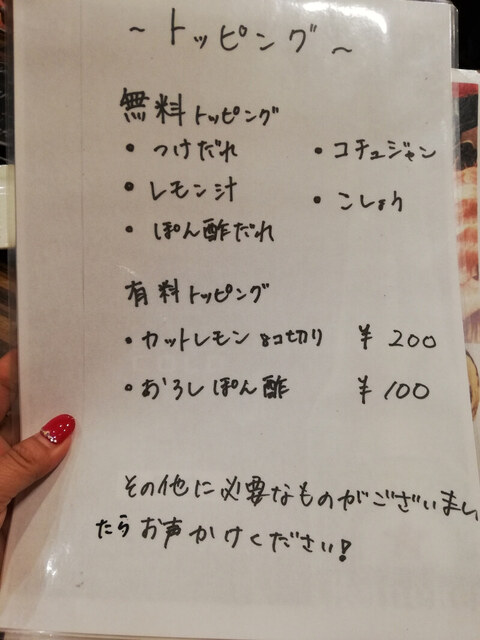 ~トッピング~
無料トッピング
・つけだれ ・コチュジャン
・レモン汁 ・こしょう
・ぽん酢だれ
有料トッピング
・カットレモン 8コ切り ¥200
・おろしぽん酢 ¥100
その他に必要なものがございまし
たらお声かけください!